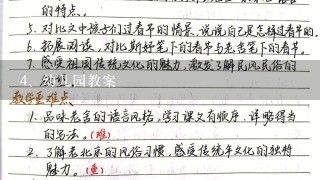 的特点。
5. 对比文中孩子们过春节的情景,说说自己是怎样过春节的。
6. 拓展阅读,对比斯妤笔下的春节与老舍笔下的春节。
7. 感受祖国传统文化的魅力,激发了解民风民俗的
4、幼儿园教案
教学重难点
1. 品味老舍的语言风格,学习课文有顺序、详略得当
的写法。(难)
2. 了解老北京的风俗习惯,感受传统年文化的独特
魅力。(重)